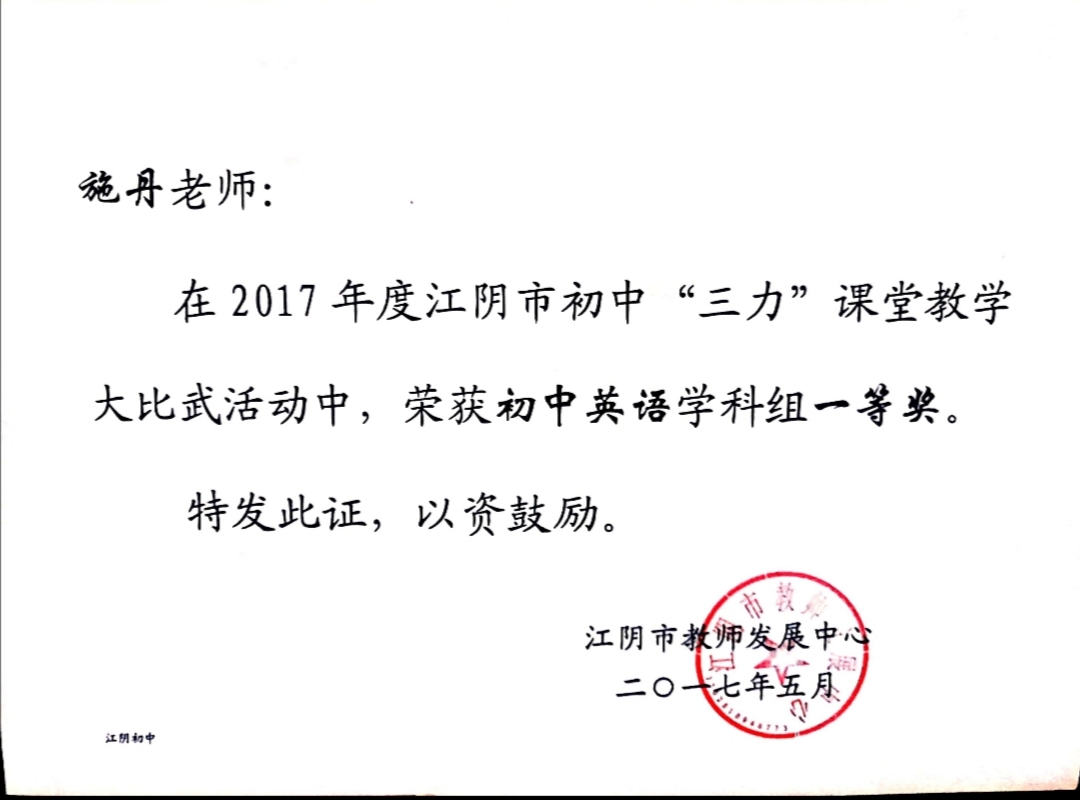 施丹老师：
在 2017 年度江阴市初中“三力”课堂教学
大比武活动中，荣获初中英语学科组一等奖。
特发此证，以资鼓励。
江阴市教师发展中心
二〇一七年五月
江阴初中